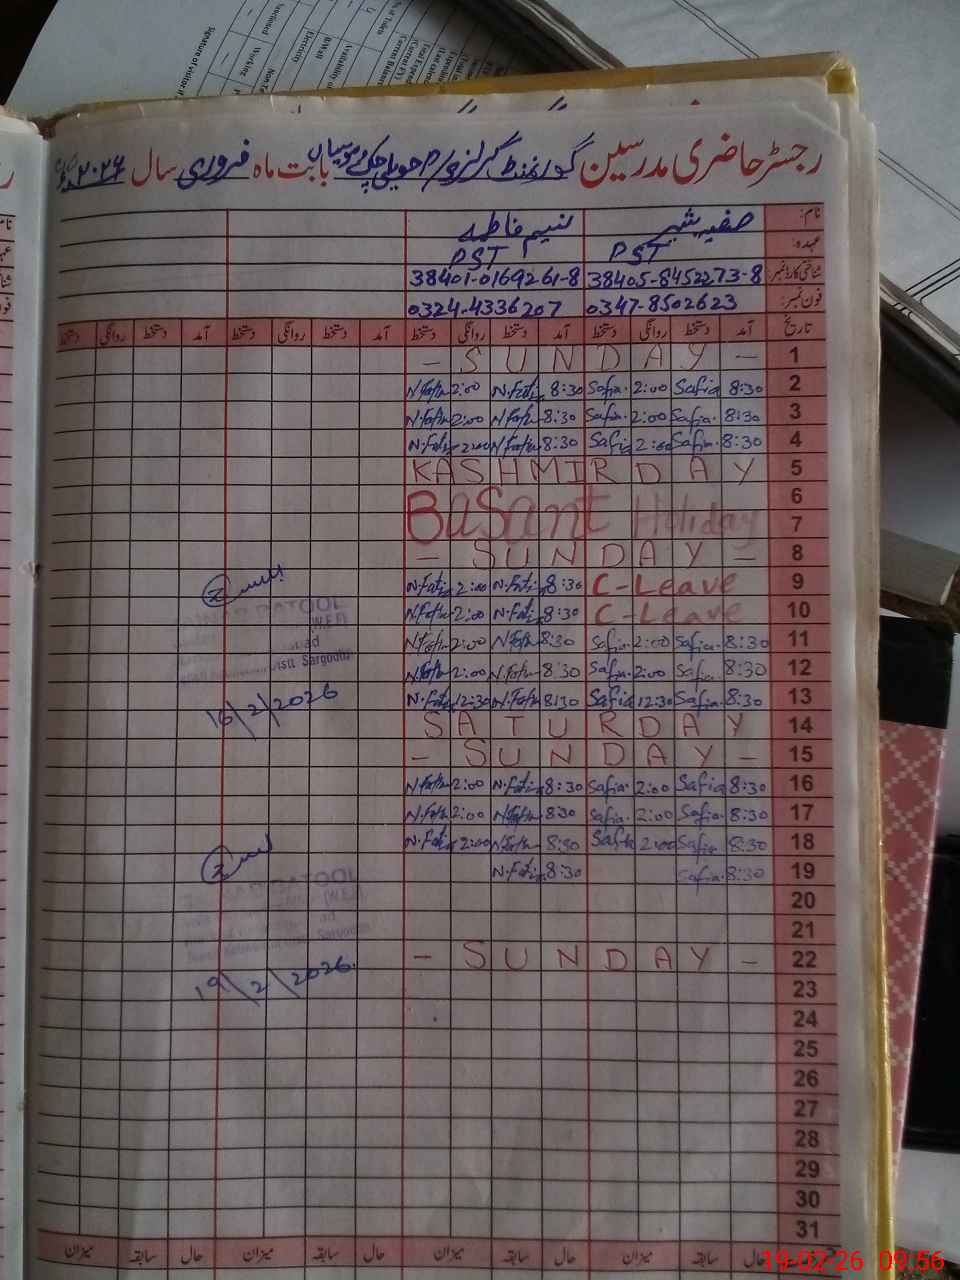 رجسٹر حاضری مدرسین گورنمنٹ گرلز بابت ماہ فروری سال ۲۰۲۶
نام: صفیہ بشیر نسیم فاطمہ
عہدہ: PST PST
شناختی کارڈ نمبر: 38405-8452273-8 38401-0169261-8
فون نمبر: 0347-8502623 0324-4336207
تاریخ آمد دستخط روانگی دستخط آمد دستخط روانگی دستخط آمد دستخط روانگی دستخط آمد دستخط روانگی دستخط
- SUNDAY - 1
N.Fatim 2:00 N.Fatim 8:30 Safia. 2:00 Safia 8:30 2
N.Fatim 2:00 N.Fatim 8:30 Safia. 2:00 Safia. 8:30 3
N.Fatim 2:00 N.Fatim 8:30 Safia 2:00 Safia. 8:30 4
KASHMIR DAY 5
Basant Holiday 6
7
- SUNDAY - 8
N.Fatim 2:00 N.Fatim 8:30 C-Leave 9
N.Fatim 2:00 N.Fatim 8:30 C-Leave 10
N.Fatim 2:00 N.Fatim 8:30 Safia. 2:00 Safia. 8:30 11
N.Fatim 2:00 N.Fatim 8:30 Safia. 2:00 Safia. 8:30 12
N.Fatim 12:30 N.Fatim 8:30 Safia 12:30 Safia. 8:30 13
SATURDAY 14
- SUNDAY - 15
N.Fatim 2:00 N.Fatim 8:30 Safia. 2:00 Safia 8:30 16
N.Fatim 2:00 N.Fatim 8:30 Safia. 2:00 Safia. 8:30 17
N.Fatim 2:00 N.Fatim 8:30 Safia 2:00 Safia 8:30 18
N.Fatim 8:30 Safia. 8:30 19
20
21
- SUNDAY - 22
23
24
25
26
27
28
29
30
31
حال سابقہ میزان حال سابقہ میزان حال سابقہ میزان حال سابقہ میزان
BATOOL
(W.EF)
Sargodha
16/2/2026
BATOOL
(W.EF)
Sargodha
19/2/2026
Signature of visitor
Functional
Working
Electricity
B/Wall
Availability of
No. of Toilets
19-02-26 09:56